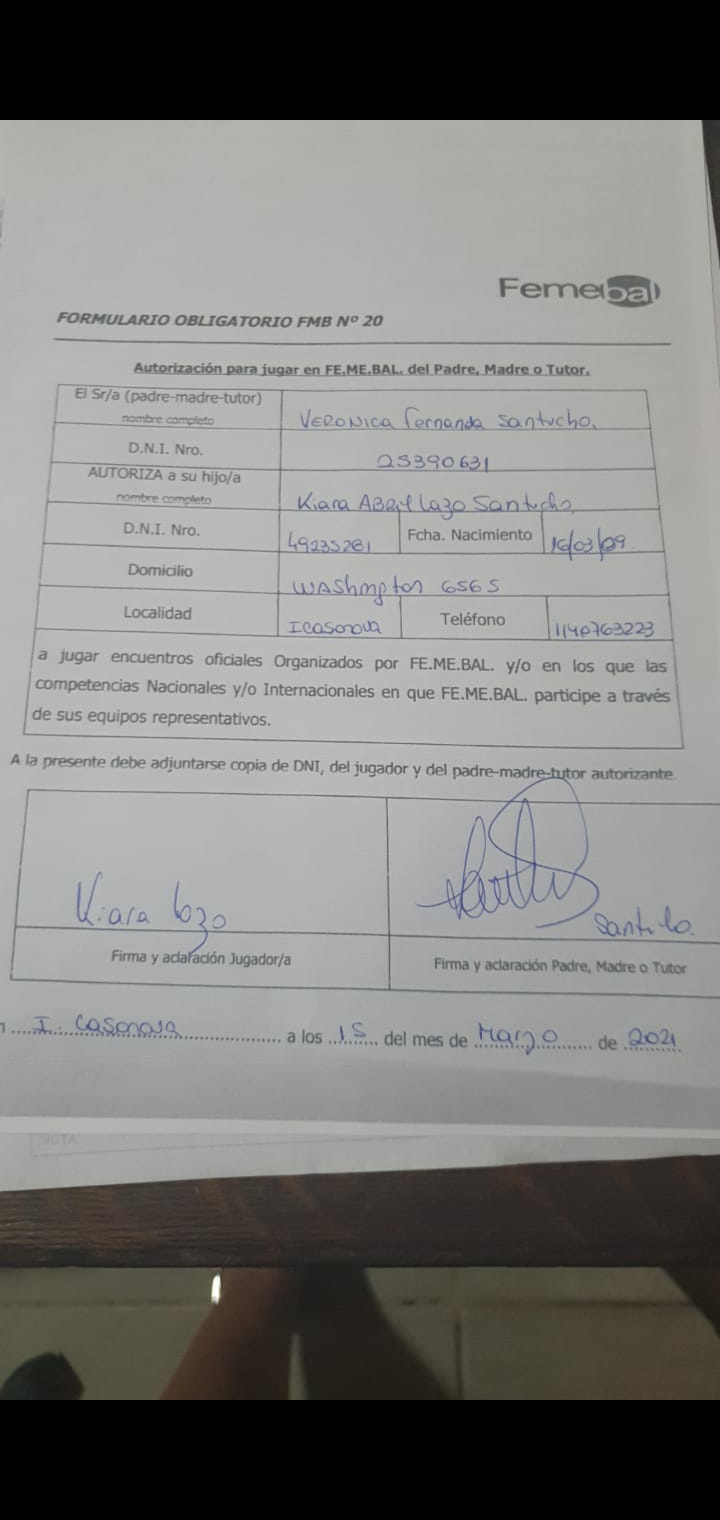 Femebal
FORMULARIO OBLIGATORIO FMB Nº 20
Autorización para jugar en FE.ME.BAL. del Padre, Madre o Tutor.
El Sr/a (padre-madre-tutor)
nombre completo
VERONICA Fernanda Santucho.
D.N.I. Nro.
25390631
AUTORIZA a su hijo/a
nombre completo
Kiara ABRil Lazo Santucho
D.N.I. Nro.
49235281
Fcha. Nacimiento
16/03/09
Domicilio
WASHington 6565
Localidad
I Casanova
Teléfono
1140763223
a jugar encuentros oficiales Organizados por FE.ME.BAL. y/o en los que las
competencias Nacionales y/o Internacionales en que FE.ME.BAL. participe a través
de sus equipos representativos.
A la presente debe adjuntarse copia de DNI, del jugador y del padre-madre-tutor autorizante.
Kiara Lazo
Santucho.
Firma y aclaración Jugador/a
Firma y aclaración Padre, Madre o Tutor
I. Casanova a los 15 del mes de Marzo de 2021
NOTA